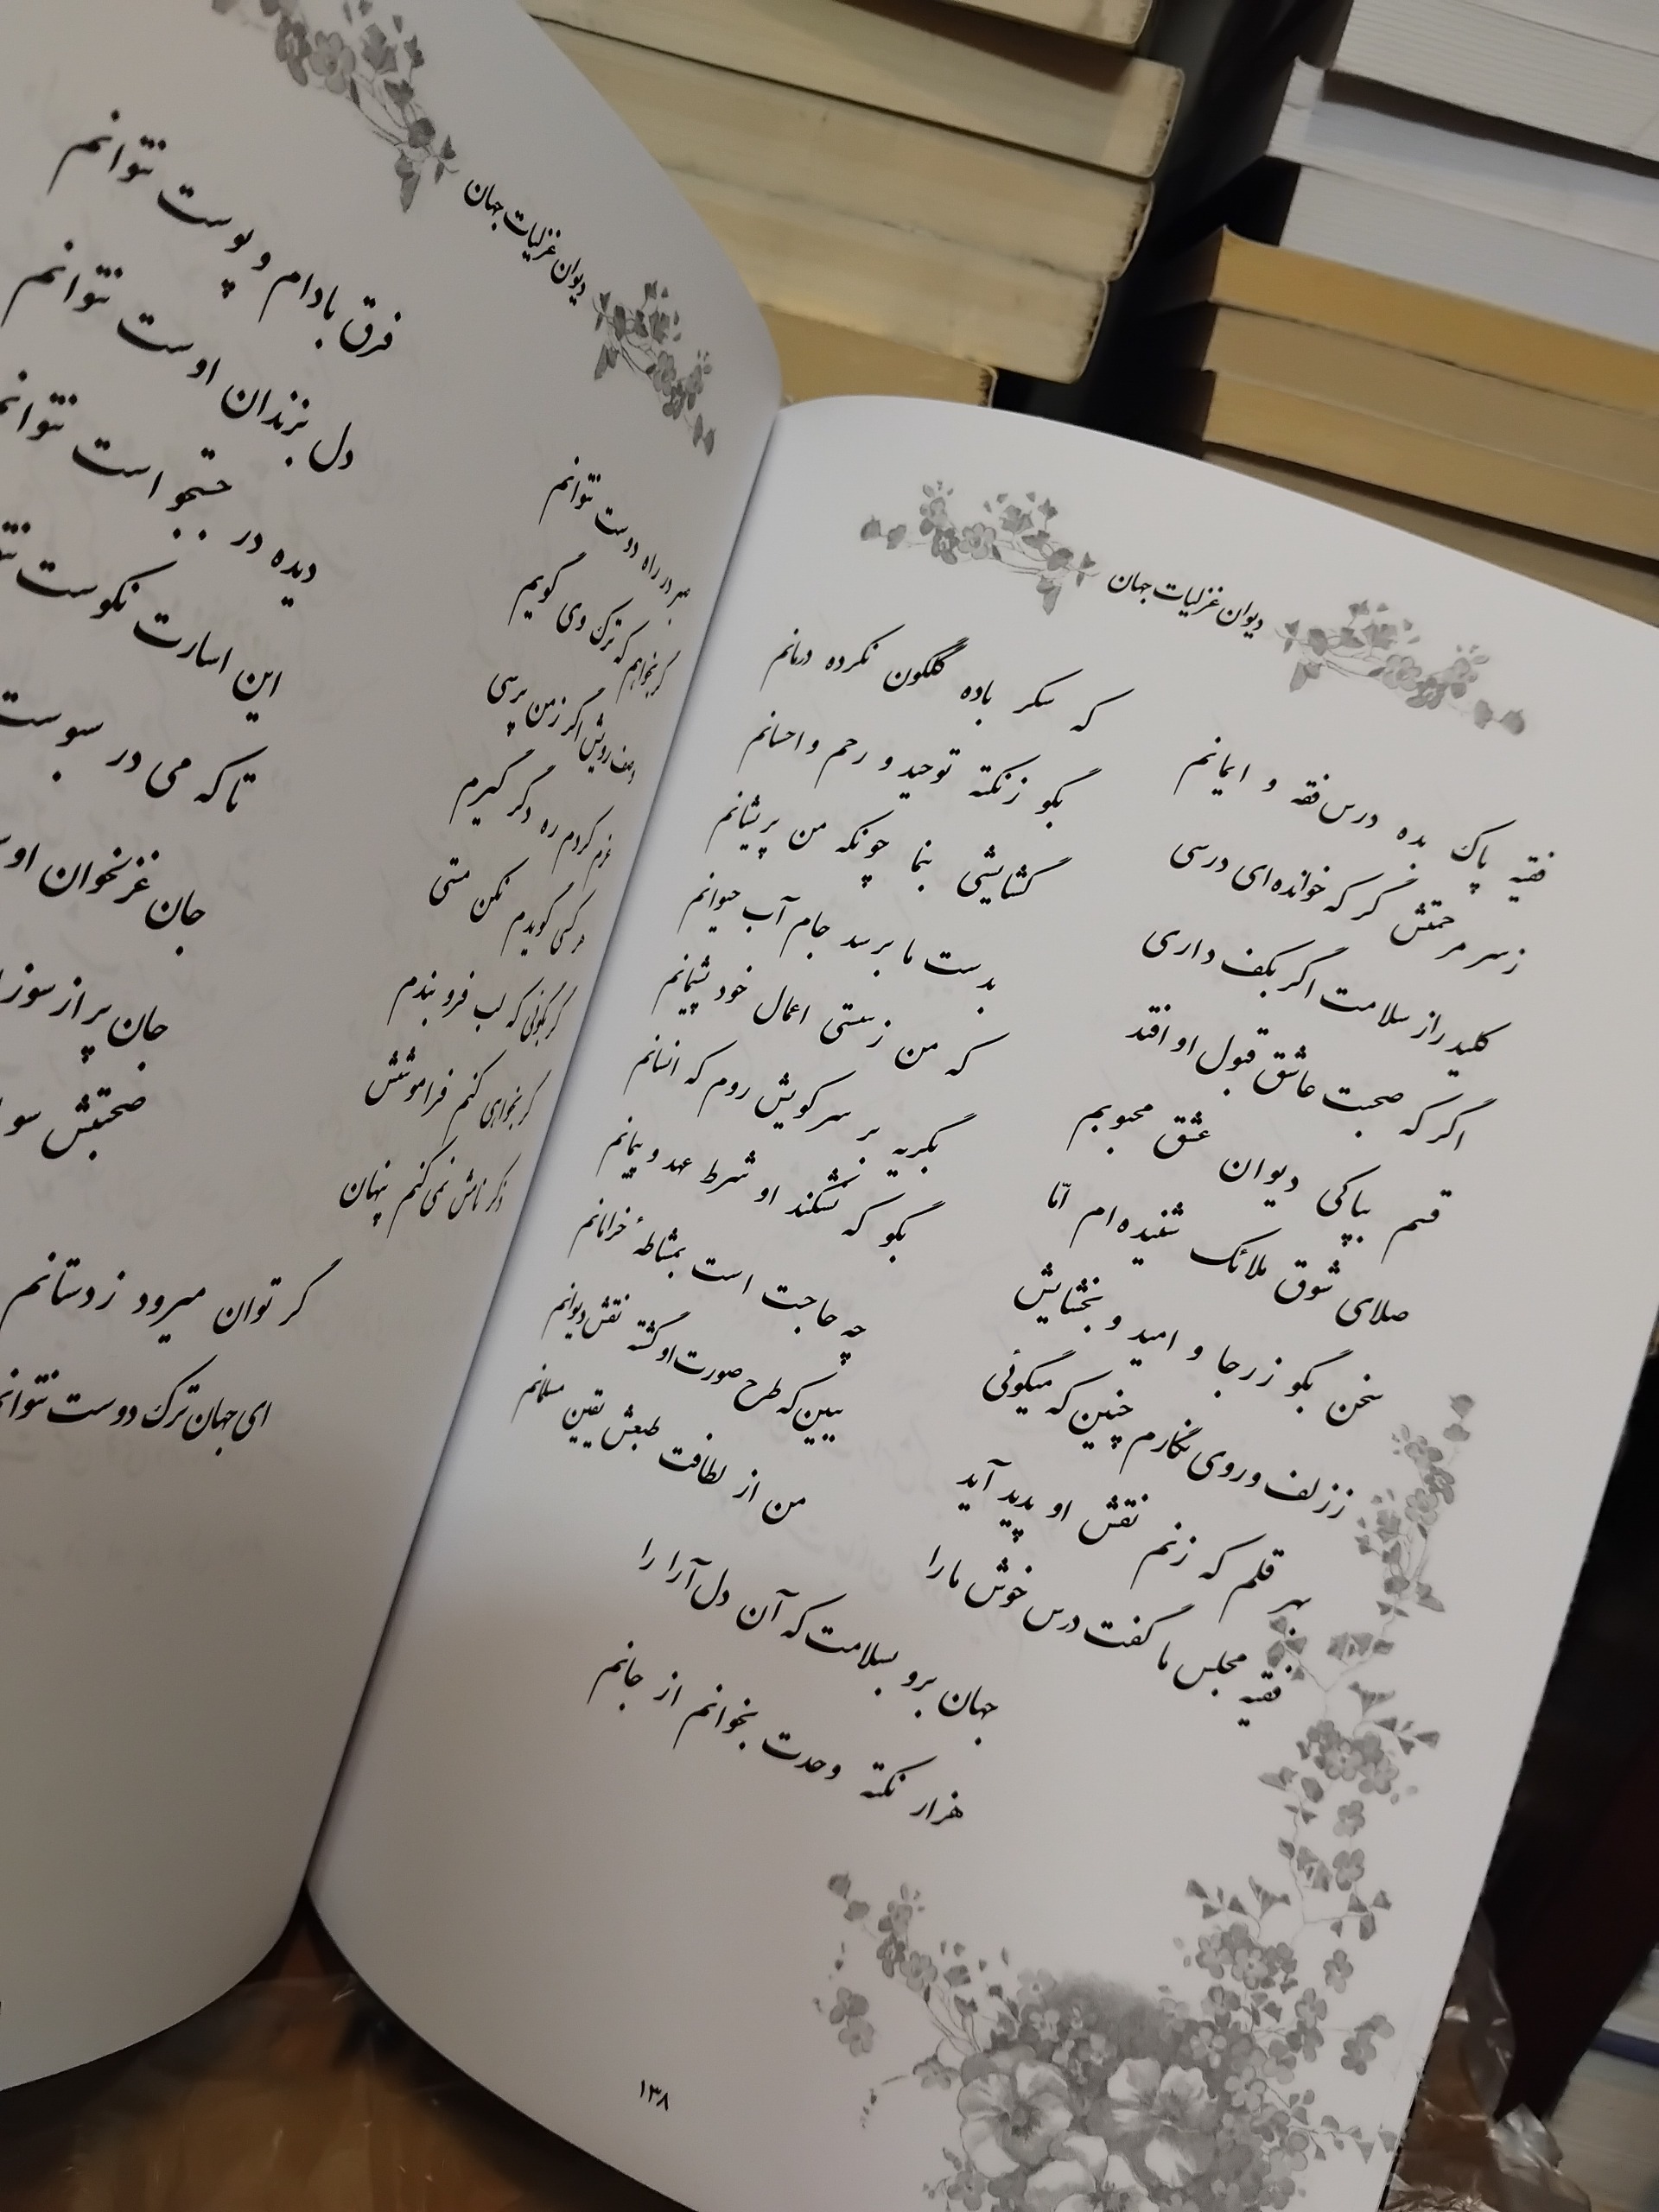 دیوان غزلیات جهان
فقیه پاک بده درس فقه و ایمانم
که سکر باده گلگون نکرده درمانم
ز سر مرحمتش گر که خوانده‌ای درسی
بگو ز نکته توحید و رحم و احسانم
کلید راز سلامت اگر بکف داری
گشایشی بنما چونکه من پریشانم
اگر که صحبت عاشق قبول او افتد
بدست ما برسد جام آب حیوانم
قسم بپاکی دیوان عشق محبوبم
که من ز سستی اعمال خود پشیمانم
صلای شوق ملائک شنیده‌ام امّا
بگریه بر سر کویش روم که انسانم
سخن بگو ز رجا و امید و بخشایش
بگو که نشکند او شرط عهد و پیمانم
ز زلف و روی نگارم چنین که میگوئی
چه حاجت است بمشاطهٔ خرامانم
بهر قلم که زنم نقش او پدید آید
ببین که طرح صورت او گشته نقش دیوانم
فقیه مجلس ما گفت درس خوش ما را
من از لطافت طبعش یقین مسلمانم
جهان برو بسلامت که آن دل‌آرا را
هزار نکته وحدت بخوانم از جانم
۱۳۸
دیوان غزلیات جهان
صبر در راه دوست نتوانم
فرق بادام و پوست نتوانم
گر بخواهم که ترک وی گویم
دل بزندان اوست نتوانم
وصف رویش اگر ز من پرسی
دیده در جستجو است نتوانم
عزم کردم ره دگر گیرم
این اسارت نکوست
هر کسی گویدم مکن مستی
تا که می در سبوست
گر بگوئی که لب فرو بندم
جان غزلخوان
گر بخواهی کنم فراموشش
جان پر از سوز
ذکر نامش نمی‌کنم پنهان
صحبتش
گر توان میرود ز دستانم
ای جهان ترک دوست نتوانم